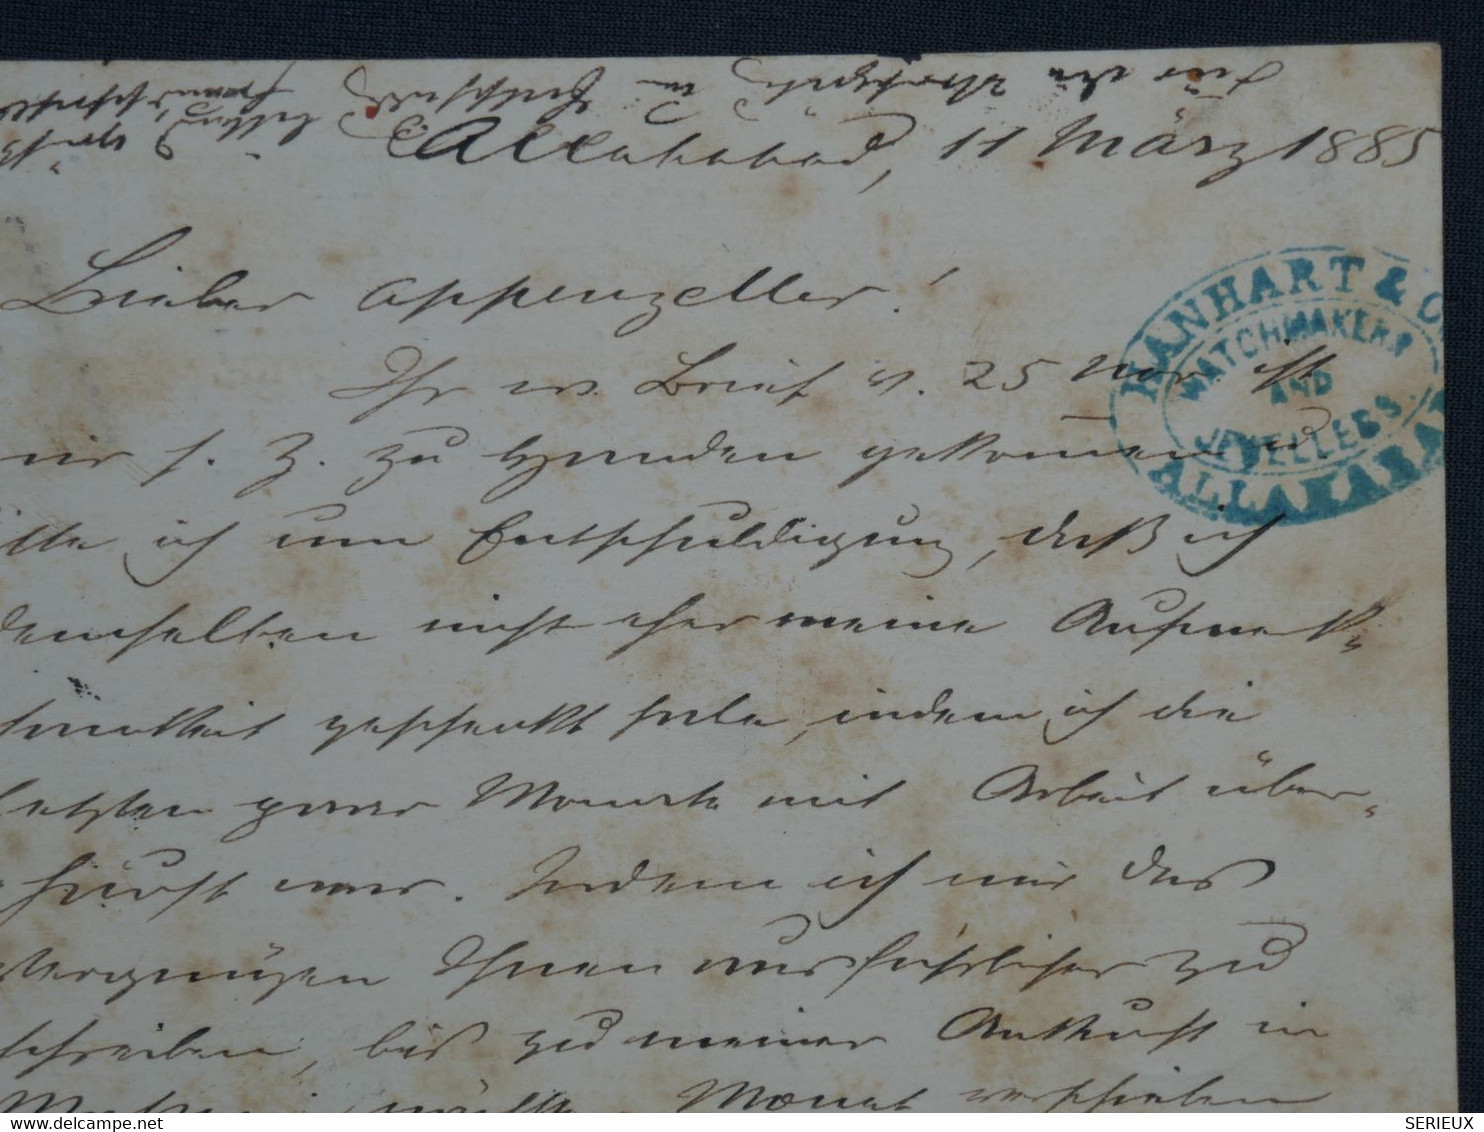 Allahabad, 11 März 1885
Lieber Appenzeller!
HANHART & CO.
WATCHMAKERS
AND
JEWELLERS.
ALLAHABAD
Ihr w. Brief v. 25 Nov ist
mir s. Z. zu Handen gekommen und
bitte ich um Entschuldigung, daß ich
demselben nicht eher meine Aufmerk-
samkeit geschenkt habe, indem ich die
letzten paar Monate mit Arbeit über-
häuft war. Indem ich mir das
Vergnügen Ihnen ausführlicher zu
schreiben, bis zu meiner Ankunft in
Monat verschieben
SERIEUX